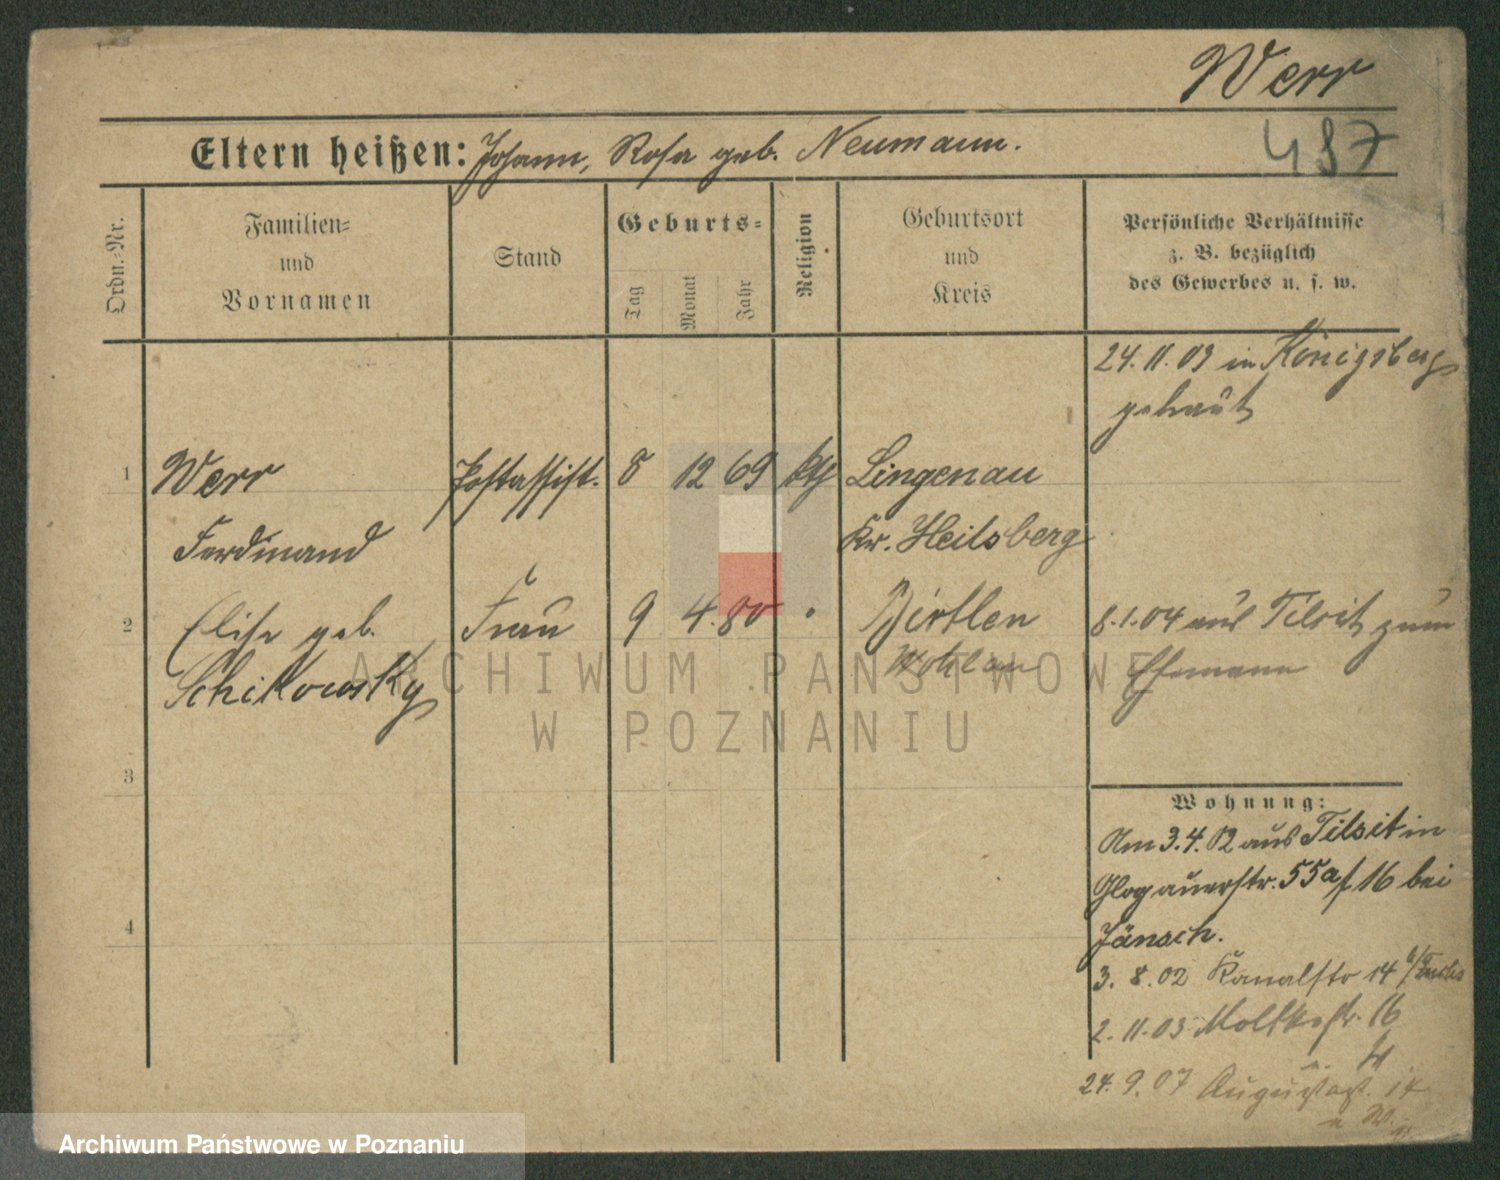 Werr
487
Eltern heißen: Johann, Rosa geb. Neumann.
Ordn.-Nr.
Familien-
und
Vornamen
Stand
Geburts-
Tag
Monat
Jahr
Religion
Geburtsort
und
Kreis
Persönliche Verhältnisse
z. B. bezüglich
des Gewerbes u. s. w.
24. 11. 03 in Königsberg
getraut
1 Werr Postassist. 8 12 69 ktl Lingenau
Ferdinand Kr. Heilsberg
2 Elise geb. Frau 9 4. 80 " 8.1.04 aus Tilsit zum
Schikowsky Ehemann
3
Wohnung:
Am 3.4.02 aus Tilsit in
Glogauerstr. 55a/16 bei
Jänsch.
4
3. 8. 02 Kanalstr 14 b/Fuchs
2. 11. 03 Moltkestr. 16
24. 9. 07 Augustast. 14
ARCHIWUM PAŃSTWOWE
W POZNANIU
Archiwum Państwowe w Poznaniu